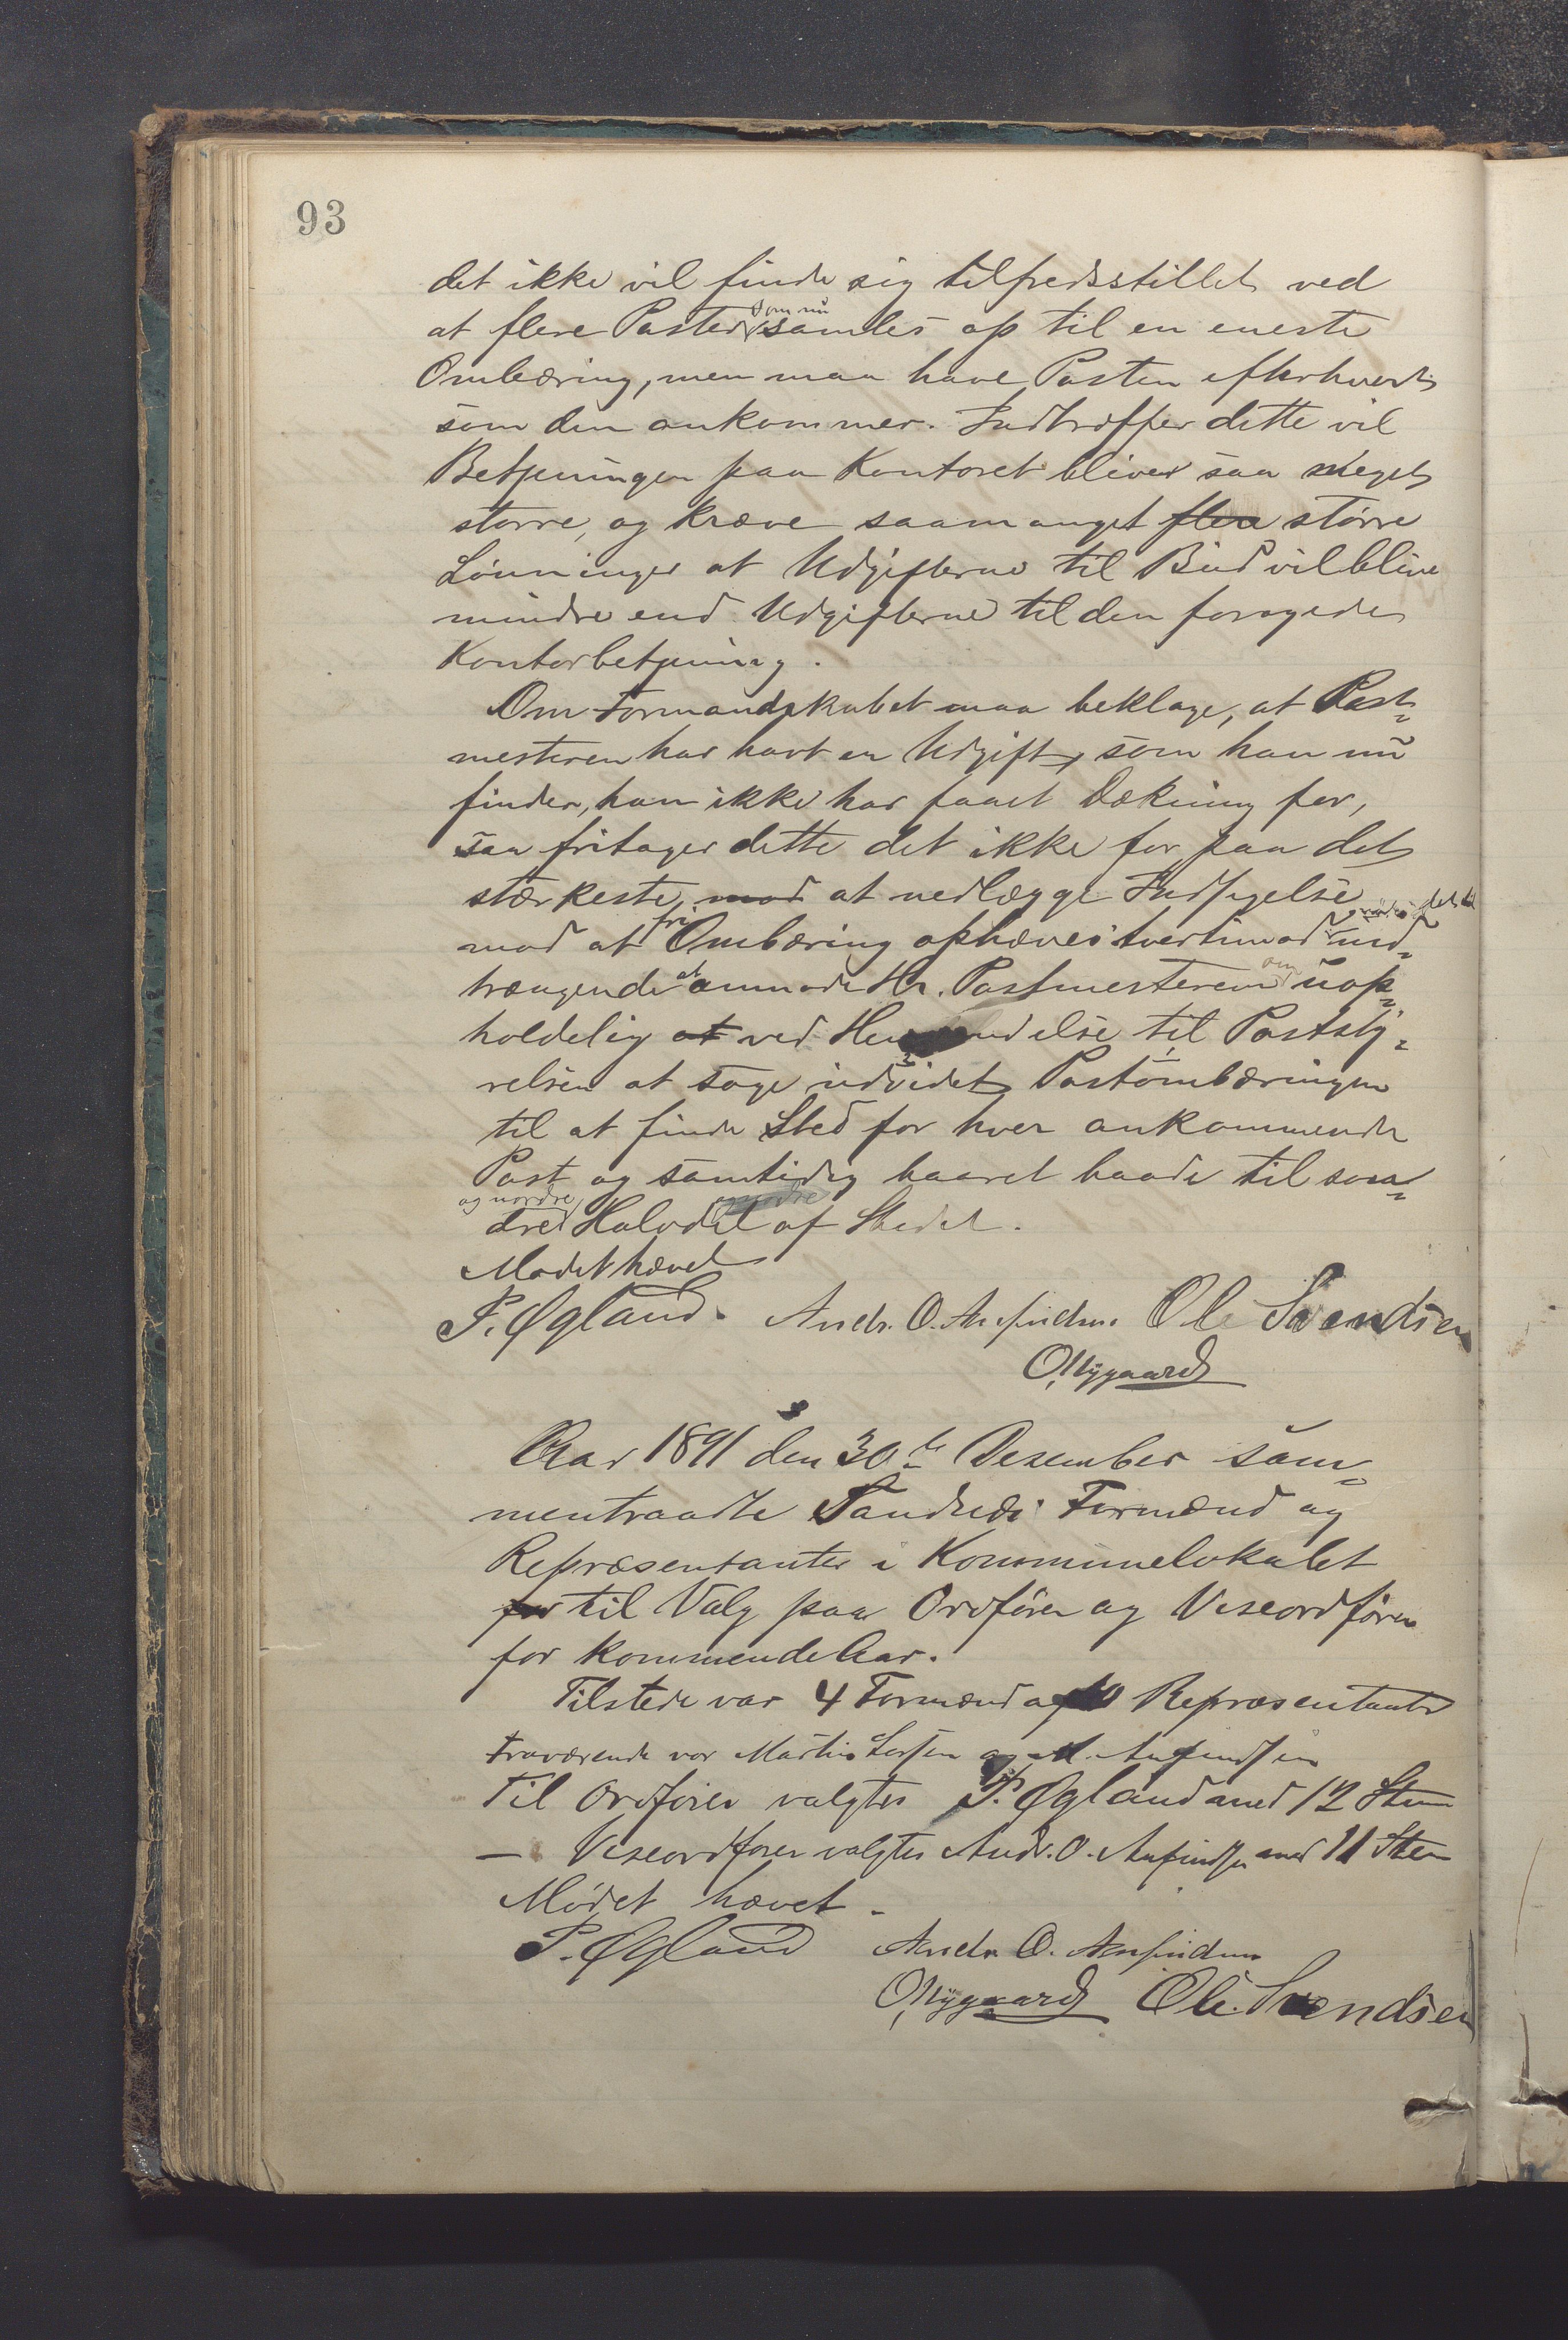 93
det ikke vil finde sig tilfredsstillet ved
at flere Poster som nu samles op til en eneste
Ombæring, men maa have Posten efterhvert
som den ankommer. Indtræffer dette vil
Betjeningen paa Kontoret bliver saa meget
større, og kræve saameget flere større
Lønninger at Udgifterne til Bud vil blive
mindre end Udgifterne til den forøgede
Kontorbetjening.
Om Formandskabet maa beklage, at Post-
mesteren har havt en Udgift, som han nu
finder, han ikke har faaet Dækning for,
saa fritager dette det ikke for paa det
stærkeste mod at nedlægge Indsigelse
mod at fri Ombæring ophæves tvertimod ind-
trængende at anmode Hr. Postmesteren om uop-
holdelig at ved Henvendelse til Poststy-
relsen at søge udvidet Postombæringen
til at finde Sted for hver ankommende
Post og samtidig baaret baade til søn-
og nordre
dre Halvdel af Stedet.
Mødet hævet
P. Øgland. Andr. O. Anfindsen Ole Svendsen
O. Nygaard
Aar 1891 den 30te Dezember sam-
mentraadte Sandnes Formænd og
Repræsentanter i Kommunelokalet
for til Valg paa Ordfører og Viseordfører
for kommende Aar.
Tilstede var 4 Formænd og 10 Repræsentanter
Fraværende var Martin Larsen og M. Anfindsen
Til Ordfører valgtes P. Øgland med 12 Stem
— Viseordfører valgtes Andr. O. Anfindsen med 11 Stem
Mødet hævet.
P. Øgland Andr. O. Anfindsen
O. Nygaard Ole Svendsen